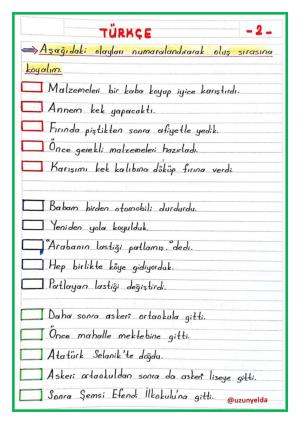 TÜRKÇE
-2-
Aşağıdaki olayları numaralandırarak oluş sırasına
koyalım.
Malzemeleri bir kaba koyup iyice karıştırdı.
Annem kek yapacaktı.
Fırında piştikten sonra afiyetle yedik.
Önce gerekli malzemeleri hazırladı.
Karışımı kek kalıbına döküp fırına verdi.
Babam birden otomobili durdurdu.
Yeniden yola koyulduk.
"Arabanın lastiği patlamış." dedi.
Hep birlikte köye gidiyorduk.
Patlayan lastiği değiştirdi.
Daha sonra askeri ortaokula gitti.
Önce mahalle mektebine gitti.
Atatürk Selanik'te doğdu.
Askeri ortaokuldan sonra da askeri liseye gitti.
Sonra Şemsi Efendi İlkokulu'na gitti.
@uzunyelda